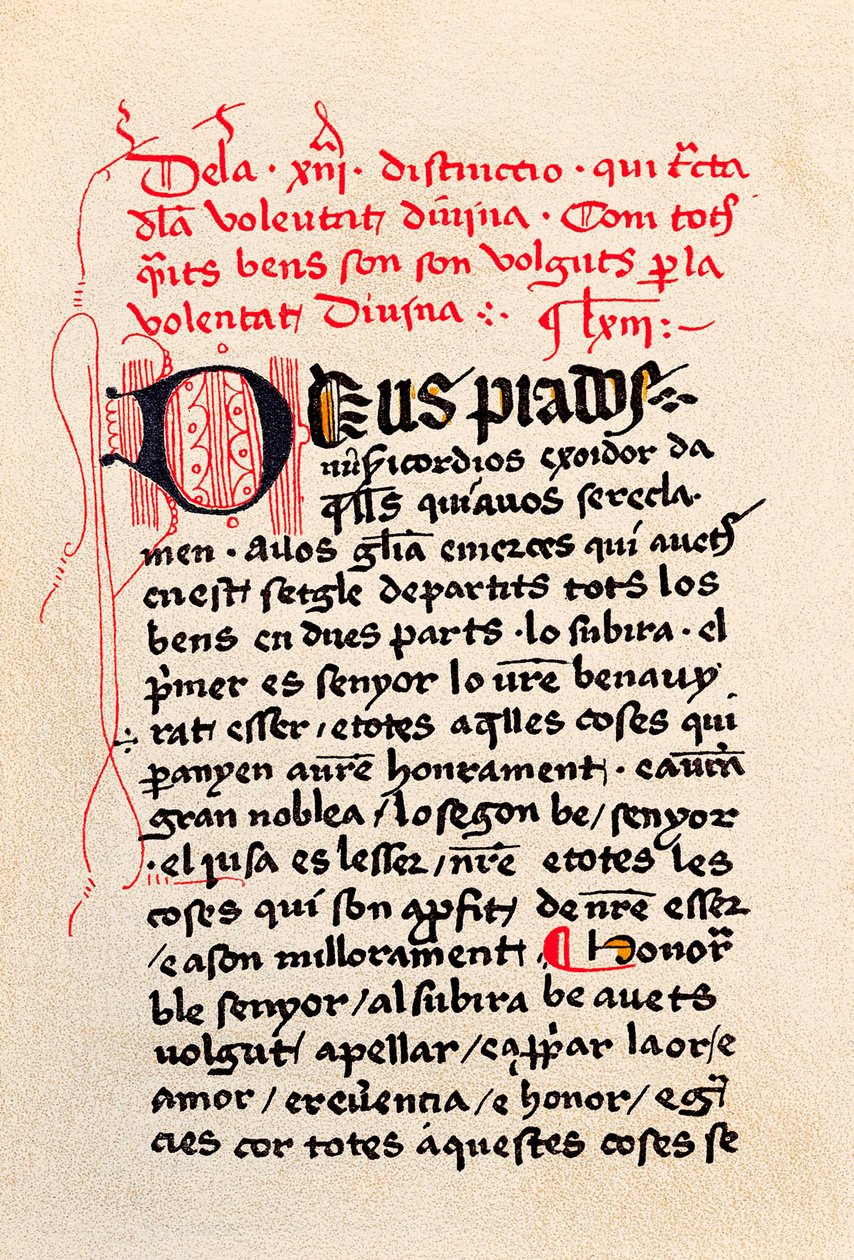 Dela · xiiij · distinctio · qui tc̃ta
dl̃a voleutat diuina · Com tots
q̃its bens son son volguts p̱la
volentat Diuina ⁘ · ¶ lxiij : ~
Deus piados
mĩsicordios exoidor da
q̃lls qui auos serecla·
men · Auos gl̃ia emerces qui auets
en est setgle departits tots los
bens en dues parts · lo subira · el
p̃mer es senyor lo ur̃e benauy
rat esser / etotes aq̃lles coses qui
p̱anyen aur̃e honrament ·
gran noblea / lo segon be / senyor
· el jusa es lesser / nr̃e etotes les
coses qui son ap̱fit de nr̃e esser
/ e ason millorament ¶ Honor̃
ble senyor / al subira be auets
volgut apellar / laor / e
amor / ereũencia / e honor / e gr̃
cies cor totes aquestes coses se